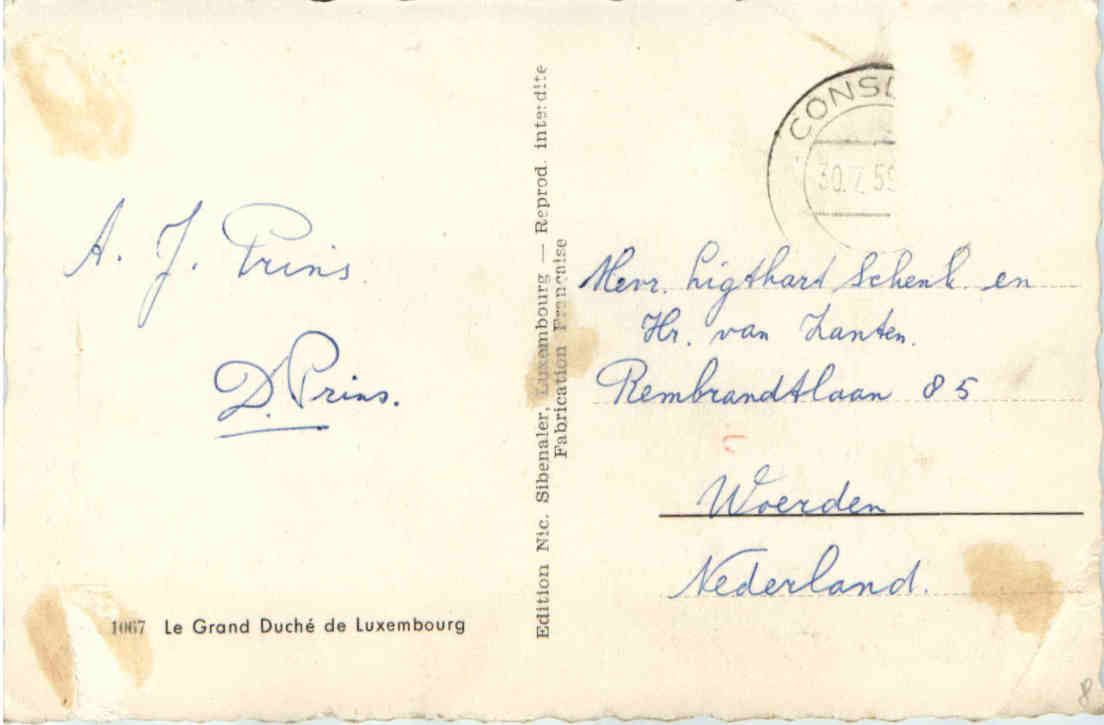 A. J. Prins
D. Prins.
1067 Le Grand Duché de Luxembourg
Edition Nic. Sibenaler, Luxembourg — Reprod. interdite
Fabrication Française
CONS
30. 59
Mevr. Ligthart Schenk. en
Hr. van Zanten.
Rembrandtlaan 85
Woerden
Nederland.
8